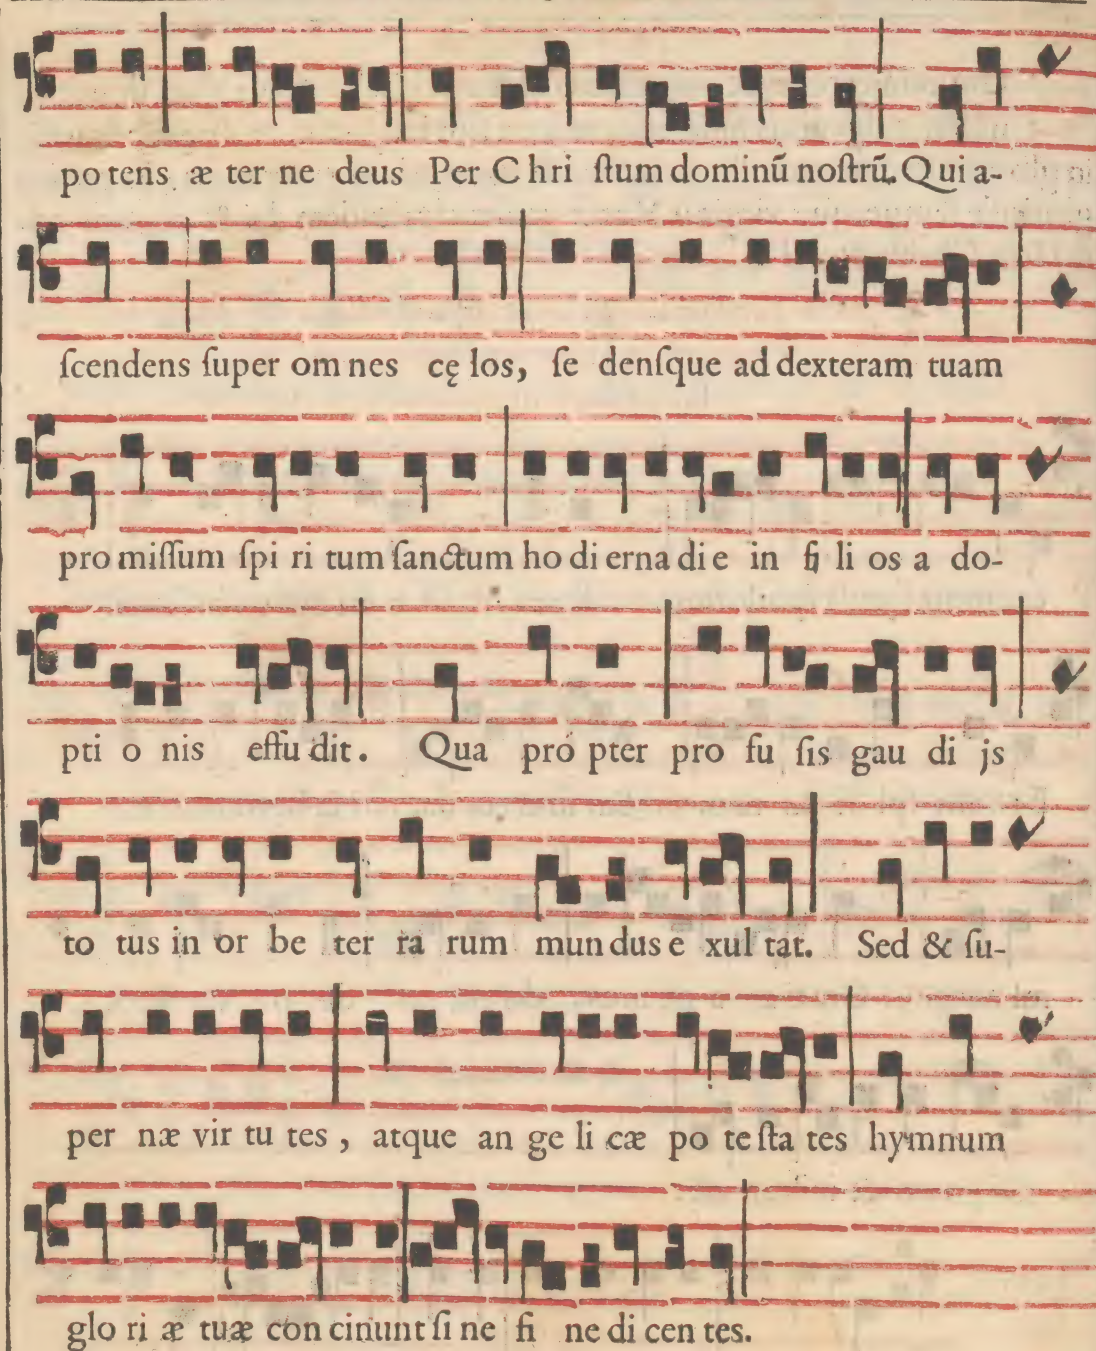 po tens æ ter ne deus Per Chri ſtum dominũ noſtrũ. Qui a-
ſcendens ſuper om nes cę los, ſe denſque ad dexteram tuam
pro miſſum ſpi ri tum ſanctum ho di erna di e in fi li os a do-
pti o nis effu dit. Qua pro pter pro fu ſis gau di js
to tus in or be ter ra rum mun dus e xul tat. Sed & ſu-
per næ vir tu tes, atque an ge li cæ po te ſta tes hymnum
glo ri æ tuæ con cinunt ſi ne fi ne di cen tes.